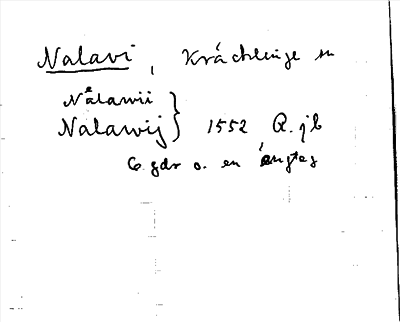 Nalavi, Kräcklinge sn
Nalawii
Nalawij } 1552 R. jb
6. gdr o. en ängteg